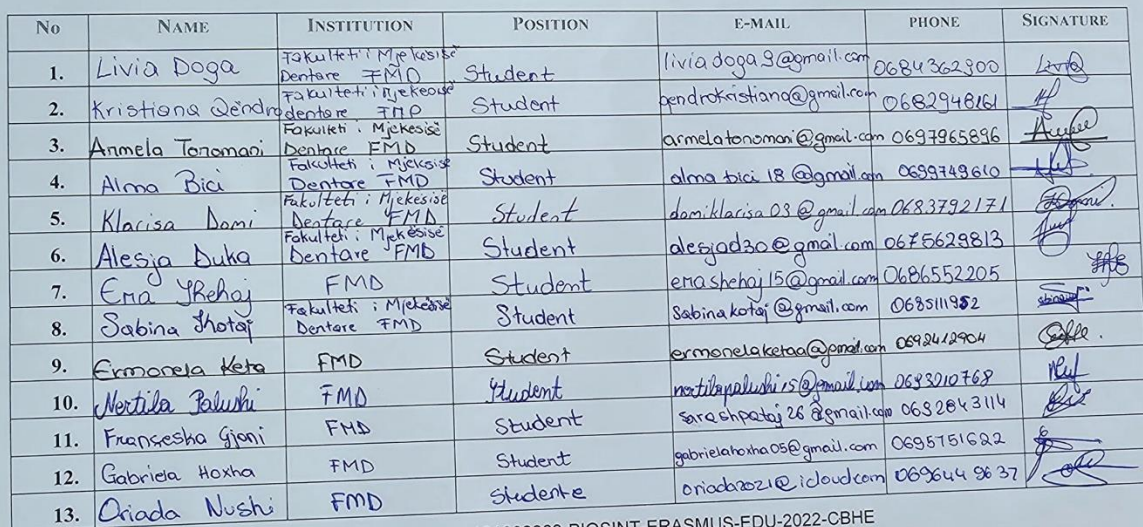 No NAME INSTITUTION POSITION E-MAIL PHONE SIGNATURE
1. Livia Doga Fakulteti i Mjekesisë Dentare FMD Student liviadoga9@gmail.com 0684362900
2. Kristiana Qendro Fakulteti i Mjekesisë dentare FMD Student qendrokristiana@gmail.com 0682948161
3. Armela Toromani Fakulteti i Mjekesisë Dentare FMD Student armelatoromani@gmail.com 0697965896
4. Alma Bici Fakulteti i Mjekesisë Dentare FMD Student alma bici 18 @gmail.com 0699749610
5. Klarisa Domi Fakulteti i Mjekësisë Dentare FMD Student domiklarisa 03 @gmail.com 0683792171
6. Alesja Duka Fakulteti i Mjekësisë Dentare FMD Student alesjad30@gmail.com 0675629813
7. Ema Shehaj FMD Student emashehaj15@gmail.com 0686552205
8. Sabina Kotaj Fakulteti i Mjekësisë Dentare FMD Student Sabinakotaj@gmail.com 0685111952
9. Ermonela Keta FMD Student ermonelaketaa@gmail.com 0692412904
10. Nertila Palushi FMD Student nertilapalushi15@gmail.com 0693010768
11. Françeska Gjoni FMD Student sarashpataj26@gmail.com 0692843114
12. Gabriela Hoxha FMD Student gabrielahoxha05@gmail.com 0695751622
13. Oriada Nushi FMD Studente oriada2021@icloud.com 069644 9637
BIOSINT-ERASMUS-EDU-2022-CBHE